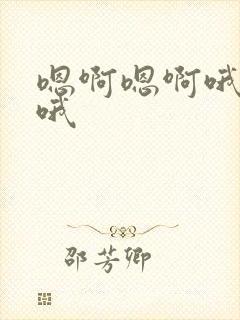 嗯啊嗯啊哦
哦
邵芳卿